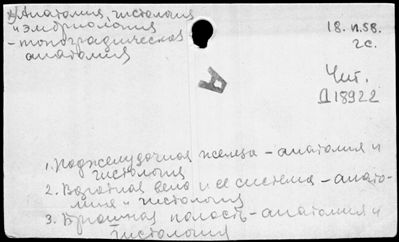 Анатомия, гистология
и эмбриология
- топографическая
анатомия
18.п.58.
2с.
А
Чит.
Д18922
1. Поджелудочная железа - анатомия и
гистология
2. Воротная вена и ее система - анато-
мия и гистология
3. Брюшная полость - анатомия и
гистология